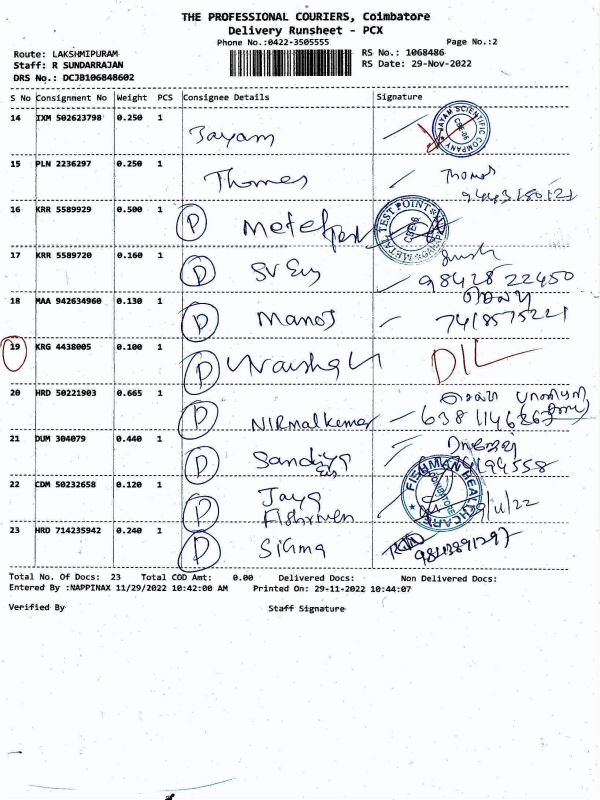 THE PROFESSIONAL COURIERS, Coimbatore
Delivery Runsheet - PCX
Phone No.:0422-3505555 Page No.:2
Route: LAKSHMIPURAM RS No.: 1068486
Staff: R SUNDARRAJAN RS Date: 29-Nov-2022
DRS No.: DCJB106848602
S No Consignment No Weight PCS Consignee Details Signature
14 IXM 502623798 0.250 1 Jayam JAYAM SCIENTIFIC COMPANY
15 PLN 2236297 0.250 1 Thomas Thomas
16 KRR 5589929 0.500 1 P Metel Test METAL TEST POINT CBE-6
17 KRR 5589720 0.160 1 P
98428 22450
18 MAA 942634960 0.130 1 P Manoj
7418575221
19 KRG 4438005 0.100 1 P DIL
20 HRD 50221903 0.665 1 P NIRmalkumar
21 DUM 304079 0.440 1 P Sandiya
22 CDM 50232658 0.120 1 P Jaya FISHMAN HEALTHCARE
Fishmen
23 HRD 714235942 0.240 1 P Sigma
Total No. Of Docs: 23 Total COD Amt: 0.00 Delivered Docs: Non Delivered Docs:
Entered By :NAPPINAX 11/29/2022 10:42:00 AM Printed On: 29-11-2022 10:44:07
Verified By Staff Signature